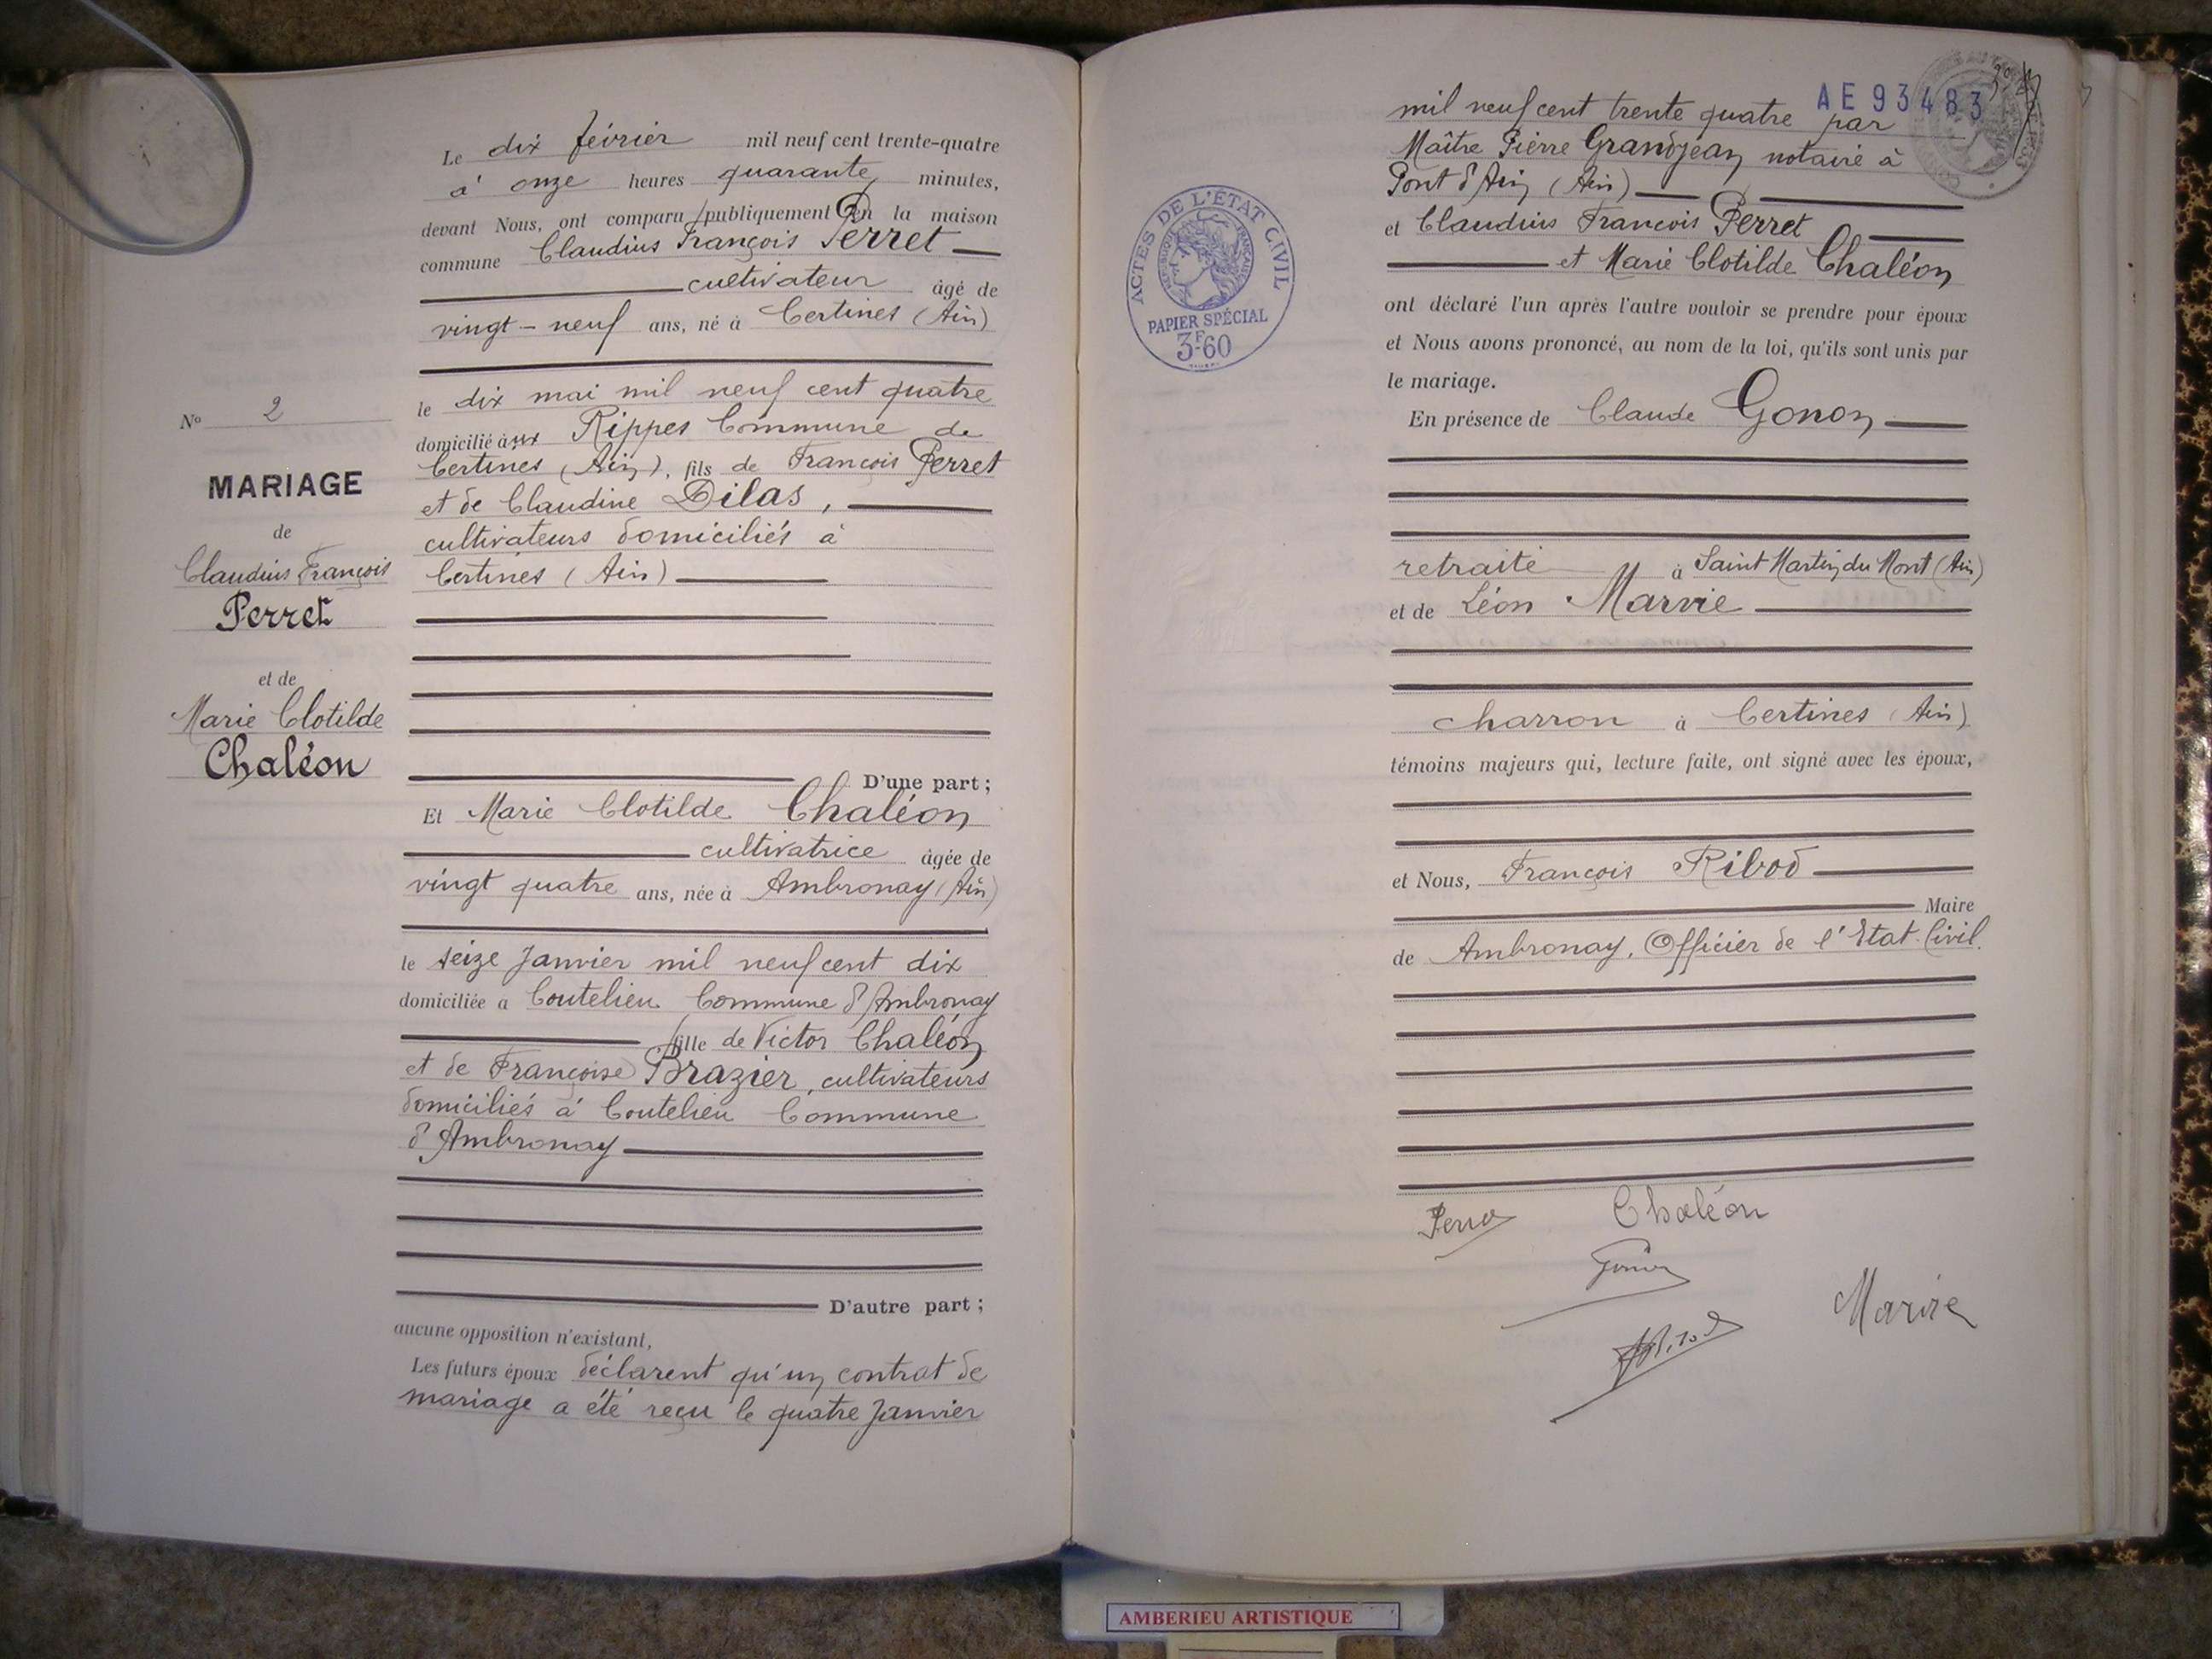 Le dix février mil neuf cent trente-quatre
à onze heures quarante minutes,
devant Nous, ont comparu publiquement en la maison
commune Claudius François Perret
cultivateur âgé de
vingt-neuf ans, né à Certines (Ain)
le dix mai mil neuf cent quatre
domicilié aux Rippes Commune de
Certines (Ain), fils de François Perret
et de Claudine Dilas,
cultivateurs domiciliés à
Certines (Ain)
D'une part;
No 2
MARIAGE
de
Claudius François
Perret
et de
Marie Clotilde
Chaléon
Et Marie Clotilde Chaléon
cultivatrice âgée de
vingt quatre ans, née à Ambronay (Ain)
le seize Janvier mil neuf cent dix
domiciliée a Coutelieu Commune d'Ambronay
fille de Victor Chaléon
et de Françoise Brazier, cultivateurs
domiciliés à Coutelieu Commune
d'Ambronay
D'autre part;
aucune opposition n'existant,
Les futurs époux déclarent qu'un contrat de
mariage a été reçu le quatre Janvier
AE 93483
mil neuf cent trente quatre par
Maître Pierre Grandjean notaire à
Pont d'Ain (Ain)
et Claudius François Perret
et Marie Clotilde Chaléon
ont déclaré l'un après l'autre vouloir se prendre pour époux
et Nous avons prononcé, au nom de la loi, qu'ils sont unis par
le mariage.
En présence de Claude Gonon
retraité à Saint Martin du Mont (Ain)
et de Léon Marvie
charron à Certines (Ain)
témoins majeurs qui, lecture faite, ont signé avec les époux,
et Nous, François Ribod
Maire
de Ambronay, Officier de l'Etat Civil.
ACTES DE L'ÉTAT CIVIL
RÉPUBLIQUE FRANÇAISE
PAPIER SPÉCIAL
3F60
Chaléon
Gonon
Marvie
AMBERIEU ARTISTIQUE